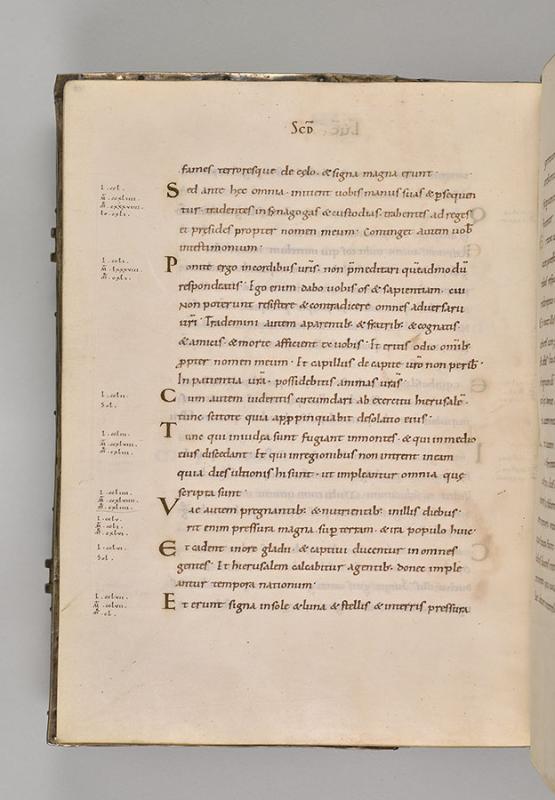 Scd
fames terroresque de cęlo · & signa magna erunt ·
Sed ante hęc omnia · inicient uobis manus suas & psequen
tur tradentes in synagogas & custodias · trahentes ad reges
et presides propter nomen meum · Continget autem uob̄
intestimonium ·
Ponite ergo incordibus ur̄is · non p̄meditari quēadmodū
respondeatis · Ego enim dabo uobis os & sapientiam · cui
non poterunt resistere & contradicere omnes aduersarii
ur̄i · Trademini autem aparentib; & fratrib; & cognatis
& amicis · & morte afficient ex uobis · Et eritis odio omīb;
ppter nomen meum · Et capillus de capite ur̄o non perib̄ ·
In patientia ur̄a · possidebitis animas ur̄as ·
Cum autem uideritis circumdari ab exercitu hierusalē ·
tunc scitote quia apppinquabit desolatio eius ·
Tunc qui iniudęa sunt fugiant inmontes · & qui inmedio
eius discedant · Et qui inregionibus non intrent ineam
quia dies ultionis hi sunt · ut impleantur omnia quę
scripta sunt ·
Vae autem pregnantib; & nutrientib; inillis diebus ·
rit enim pressura magna sup terram · & ira populo huic ·
Et cadent inore gladii · & captiui ducentur in omnes
gentes · Et hierusalem calcabitur agentib; donec imple
antur tempora nationum ·
Et erunt signa insole & luna & stellis & interris pressura